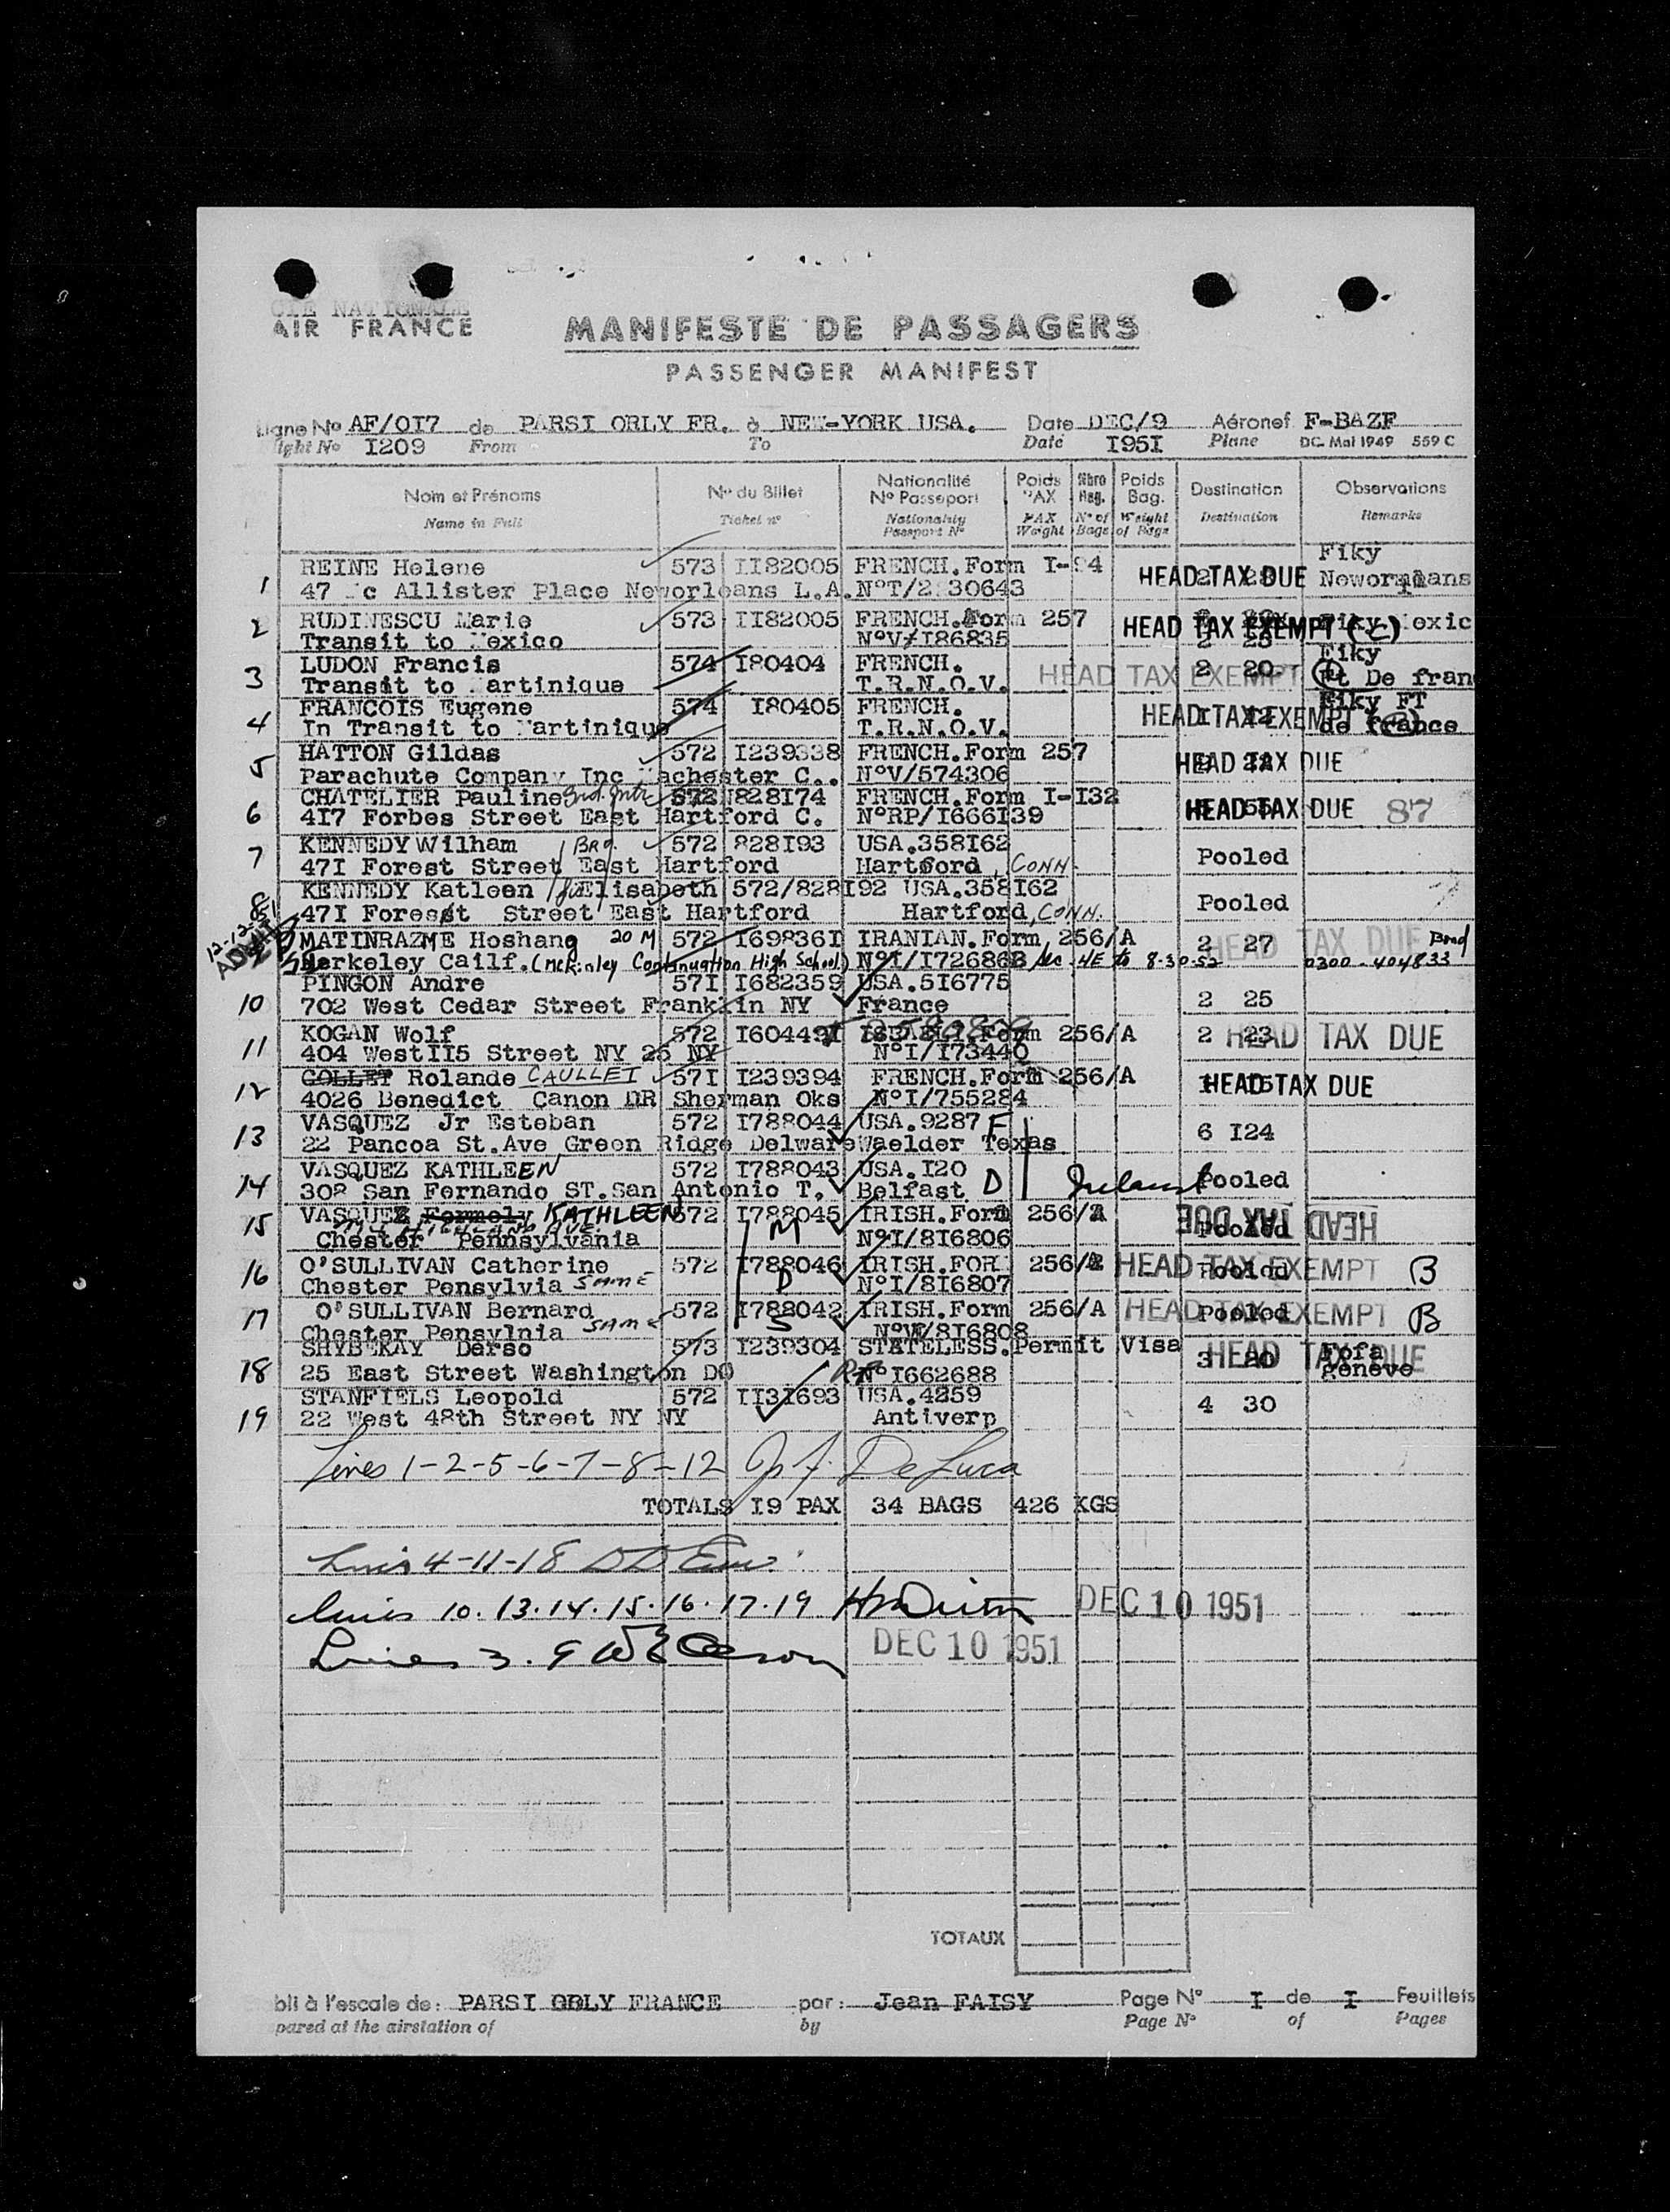 CIE NATIONALE
AIR FRANCE
MANIFESTE DE PASSAGERS
PASSENGER MANIFEST
Ligne No AF/OI7 de PARSI ORLY FR. à NEW-YORK USA. Date DEC/9 Aéronef F-BAZF
ight No I209 From To Date I95I Plane DC. Mai 1949 559 C
Nom et Prénoms Nos du Billet Nationalité No Passeport Poids PAX Nbre Bag. Poids Bag. Destination Observations
Name in Full Ticket no Nationality Passport No PAX Weight No of Bags Weight of Bags Destination Remarks
1 REINE Helene 573 II82005 FRENCH.Form I-94 HEAD TAX DUE Fiky
47 Mc Allister Place Neworleans L.A. NoT/2 30643 Neworleans
2 RUDINESCU Marie 573 II82005 FRENCH.Form 257 HEAD TAX EXEMPT (C) Fiky Mexic
Transit to Mexico NoV/I86835 2 23
3 LUDON Francis 574 I80404 FRENCH. HEAD TAX EXEMPT 2 20 Fiky
Transit to Martinique T.R.N.O.V. Ft De fran
4 FRANCOIS Eugene 574 I80405 FRENCH. HEAD TAX EXEMPT Fiky FT
In Transit to Martinique T.R.N.O.V. de france
5 HATTON Gildas 572 I239338 FRENCH.Form 257 HEAD TAX DUE
Parachute Company Inc Machester C.. NoV/574306
6 CHATELIER Pauline 572 828I74 FRENCH.Form I-I32 HEAD TAX DUE 87
4I7 Forbes Street East Hartford C. NoRP/I666I39
7 KENNEDY Wilham Bro. 572 828I93 USA.358I62 Pooled
47I Forest Street East Hartford Hartford, CONN.
8 KENNEDY Katleen Elisabeth 572/828I92 USA.358I62 Pooled
47I Forest Street East Hartford Hartford, CONN.
12-12-51
MATINRAZME Hoshang 20 M 572 I69836I IRANIAN.Form 256/A 2 27 HEAD TAX DUE Bond
Berkeley Cailf. (McKinley Continuation High School) NoI/I726868 Sec. 4E to 8-30-52 0300-404833
10 PINGON Andre 57I I682359 USA.5I6775 2 25
702 West Cedar Street Franklin NY France
11 KOGAN Wolf 572 I60449I Form 256/A 2 23 HEAD TAX DUE
404 West II5 Street NY 25 NY NoI/I73440
12 COLLET Rolande CAULLET 57I I239394 FRENCH.Form 256/A HEAD TAX DUE
4026 Benedict Canon DR Sherman Oks NoI/755284
13 VASQUEZ Jr Esteban 572 I788044 USA.9287 F 6 I24
22 Pancoa St.Ave Green Ridge Delware Waelder Texas
14 VASQUEZ KATHLEEN 572 I788043 USA.I20 Pooled
308 San Fernando ST.San Antonio T. Belfast D Ireland
15 VASQUEZ Formely KATHLEEN 572 I788045 IRISH.Form 256/A Pooled HEAD TAX DUE
Chester Pennsylvania M NoI/8I6806
16 O'SULLIVAN Catherine 572 I788046 IRISH.FOR 256/A HEAD TAX EXEMPT Pooled B
Chester Pensylvia SAME D NoI/8I6807
17 O'SULLIVAN Bernard 572 I788042 IRISH.Form 256/A HEAD TAX EXEMPT Pooled B
Chester Pensylnia SAME S 8I6808
18 SHYBEKAY Darso 573 I239304 STATELESS.Permit Visa HEAD TAX DUE
25 East Street Washington DC No I662688 geneve
19 STANFIELS Leopold 572 II3I693 USA.4259 4 30
22 West 48th Street NY NY Antiverp
Lines 1-2-5-6-7-8-12 J.F. DeLuca
TOTALS I9 PAX 34 BAGS 426 KGS
Lines 4-11-18
Lines 10.13.14.15.16.17.19 DEC 10 1951
Lines 3. 9 DEC 10 1951
TOTAUX
bli à l'escale de: PARSI ORLY FRANCE par: Jean FAISY Page No I de I Feuillets
pared at the airstation of by Page No of Pages